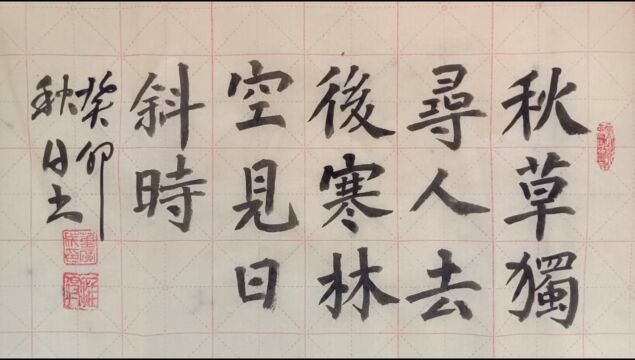 秋草獨
尋人去
後寒林
空見日
斜時
癸卯
秋日書